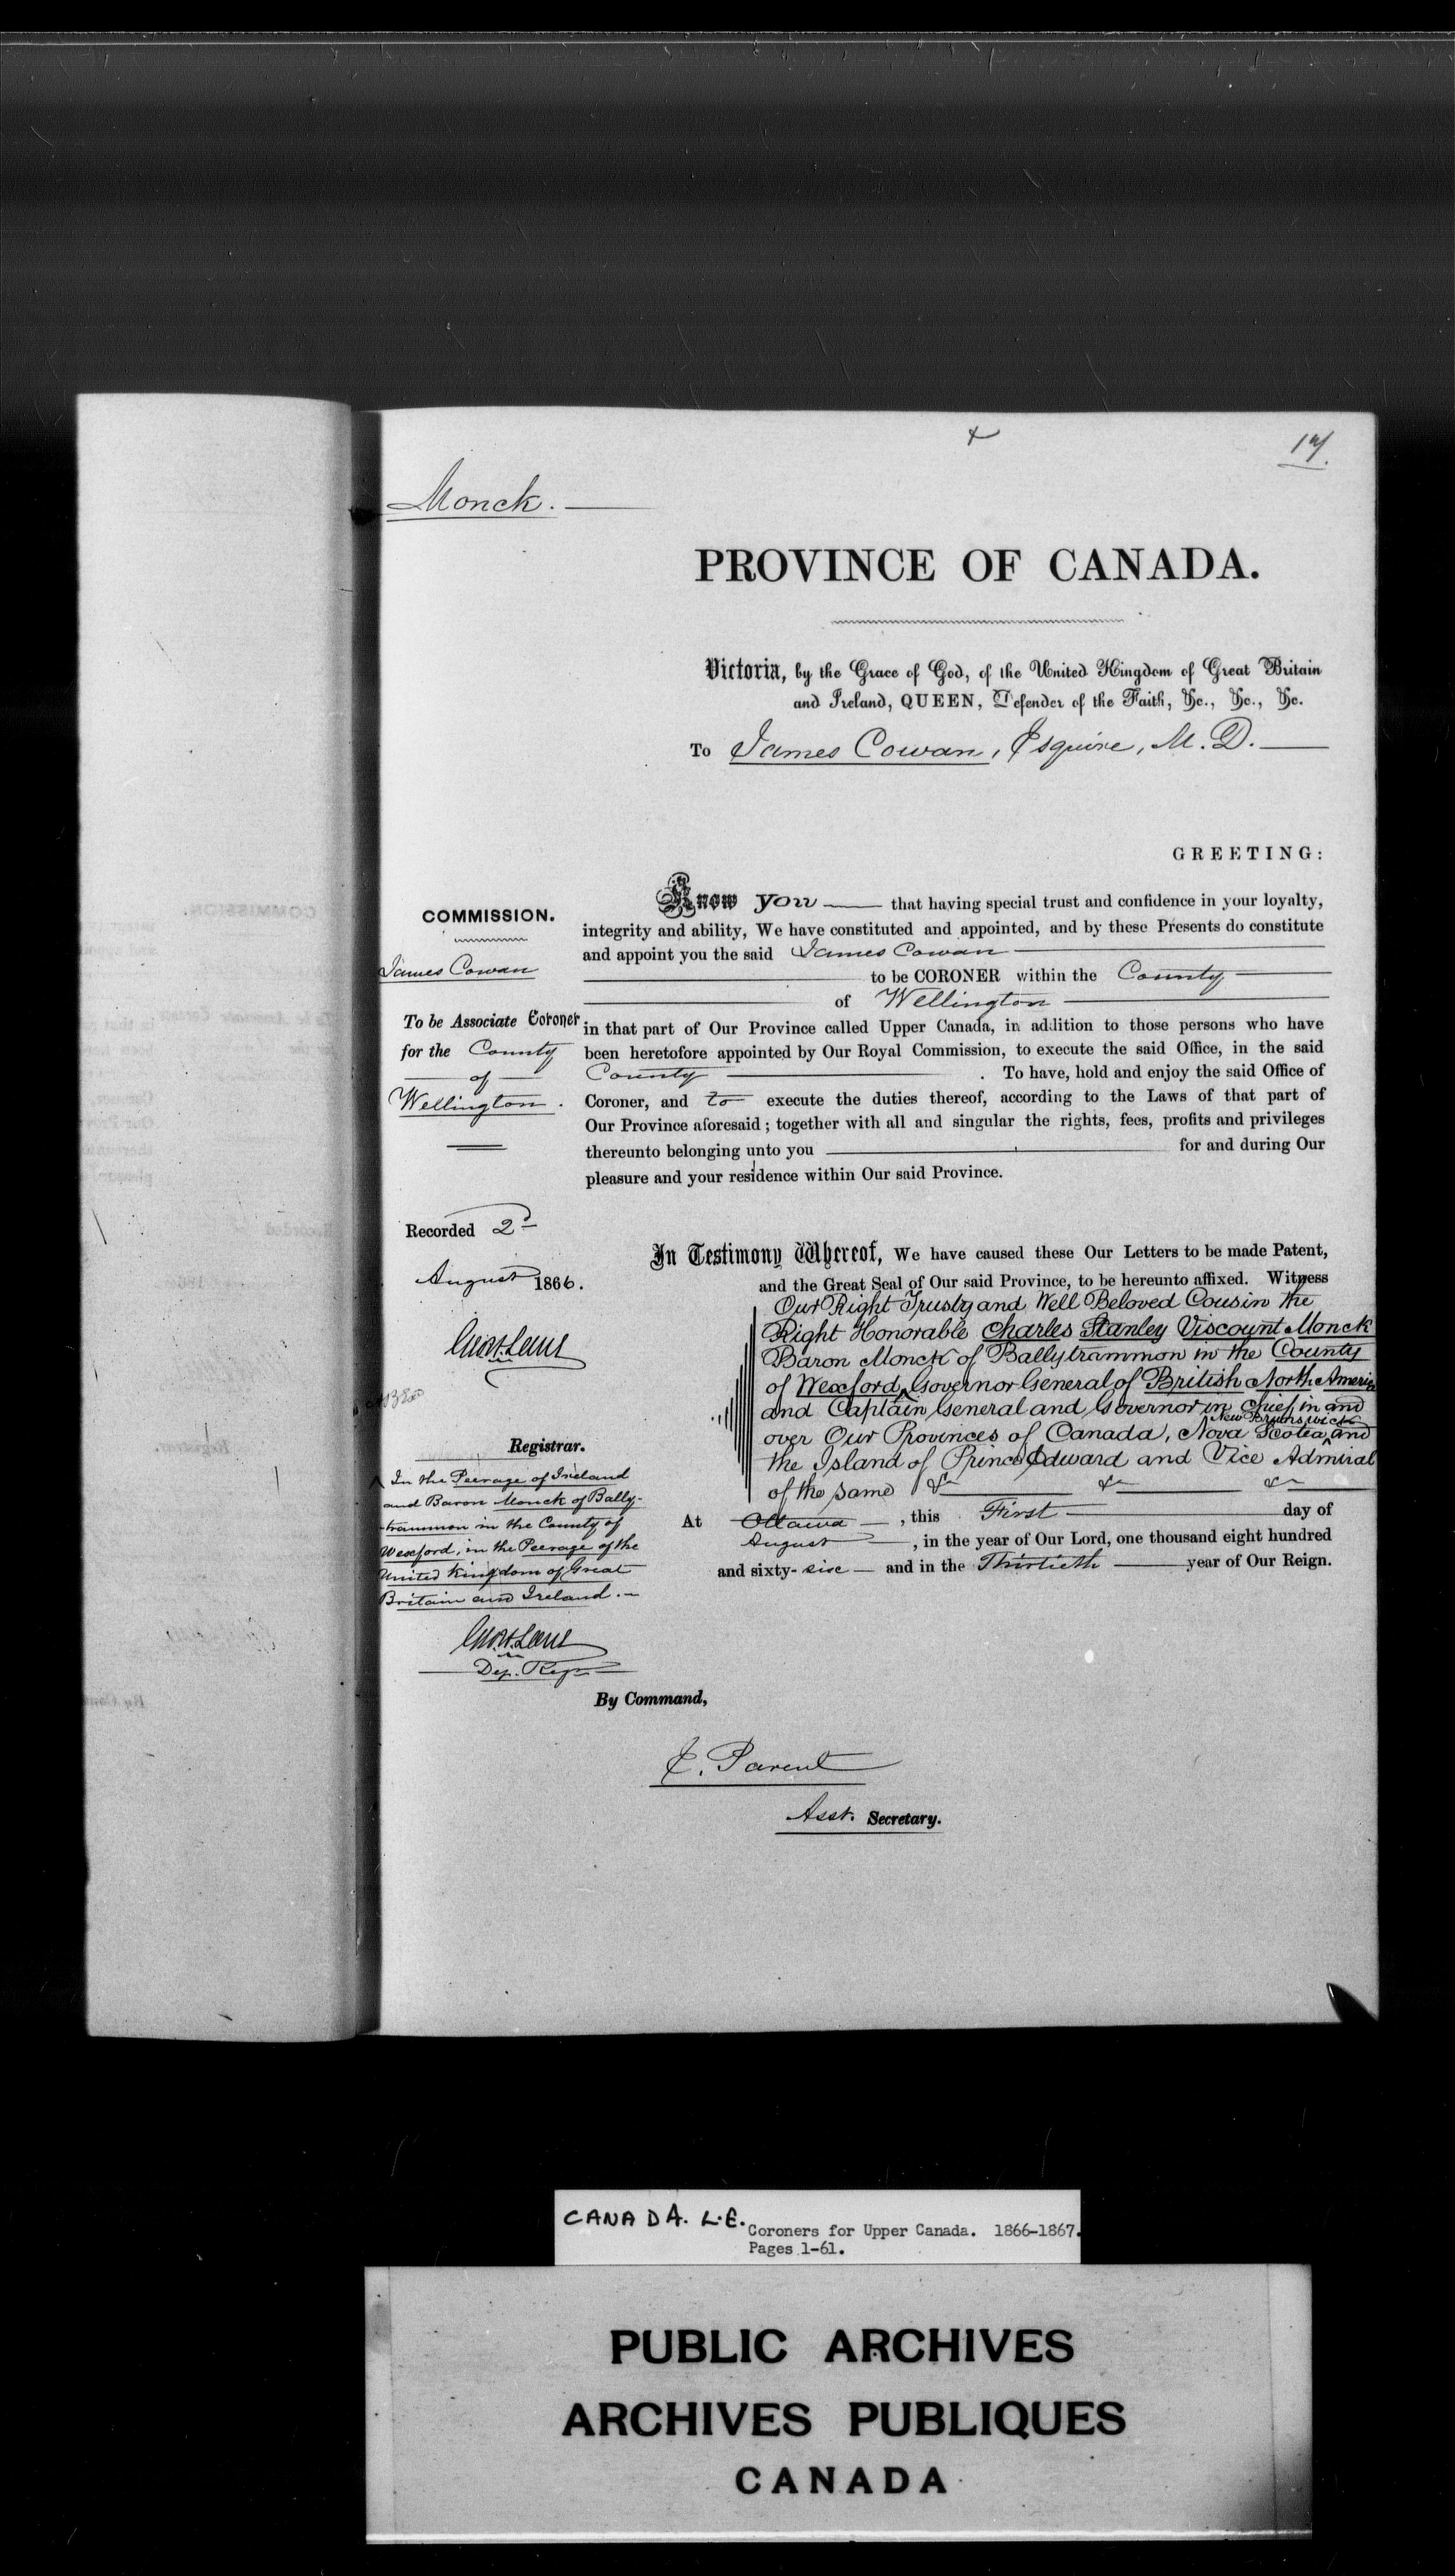 17.
Monck.
PROVINCE OF CANADA.
Victoria, by the Grace of God, of the United Kingdom of Great Britain
and Ireland, QUEEN, Defender of the Faith, &c., &c., &c.
To James Cowan, Esquire, M. D.
GREETING:
COMMISSION.
James Cowan
To be Associate Coroner
for the County
of
Wellington.
Know you that having special trust and confidence in your loyalty,
integrity and ability, We have constituted and appointed, and by these Presents do constitute
and appoint you the said James Cowan
to be CORONER within the County
of Wellington
in that part of Our Province called Upper Canada, in addition to those persons who have
been heretofore appointed by Our Royal Commission, to execute the said Office, in the said
County . To have, hold and enjoy the said Office of
Coroner, and to execute the duties thereof, according to the Laws of that part of
Our Province aforesaid; together with all and singular the rights, fees, profits and privileges
thereunto belonging unto you for and during Our
pleasure and your residence within Our said Province.
Recorded 2d
August 1866.
Registrar.
In the Peerage of Ireland
and Baron Monck of Bally-
trammon in the County of
Wexford, in the Peerage of the
United Kingdom of Great
Britain and Ireland.
Dep. Regr
In Testimony Whereof, We have caused these Our Letters to be made Patent,
and the Great Seal of Our said Province, to be hereunto affixed. Witness
Our Right Trusty and Well Beloved Cousin the
Right Honorable Charles Stanley Viscount Monck
Baron Monck of Ballytrammon in the County
of Wexford, Governor General of British North America
and Captain General and Governor in Chief in and
New Brunswick
over Our Provinces of Canada, Nova Scotia and
the Island of Prince Edward and Vice Admiral
of the same &c &c &c
At Ottawa, this First day of
August, in the year of Our Lord, one thousand eight hundred
and sixty-six and in the Thirtieth year of Our Reign.
By Command,
E. Parent
Asst. Secretary.
CANADA. L.E.
Coroners for Upper Canada. 1866-1867.
Pages 1-61.
PUBLIC ARCHIVES
ARCHIVES PUBLIQUES
CANADA